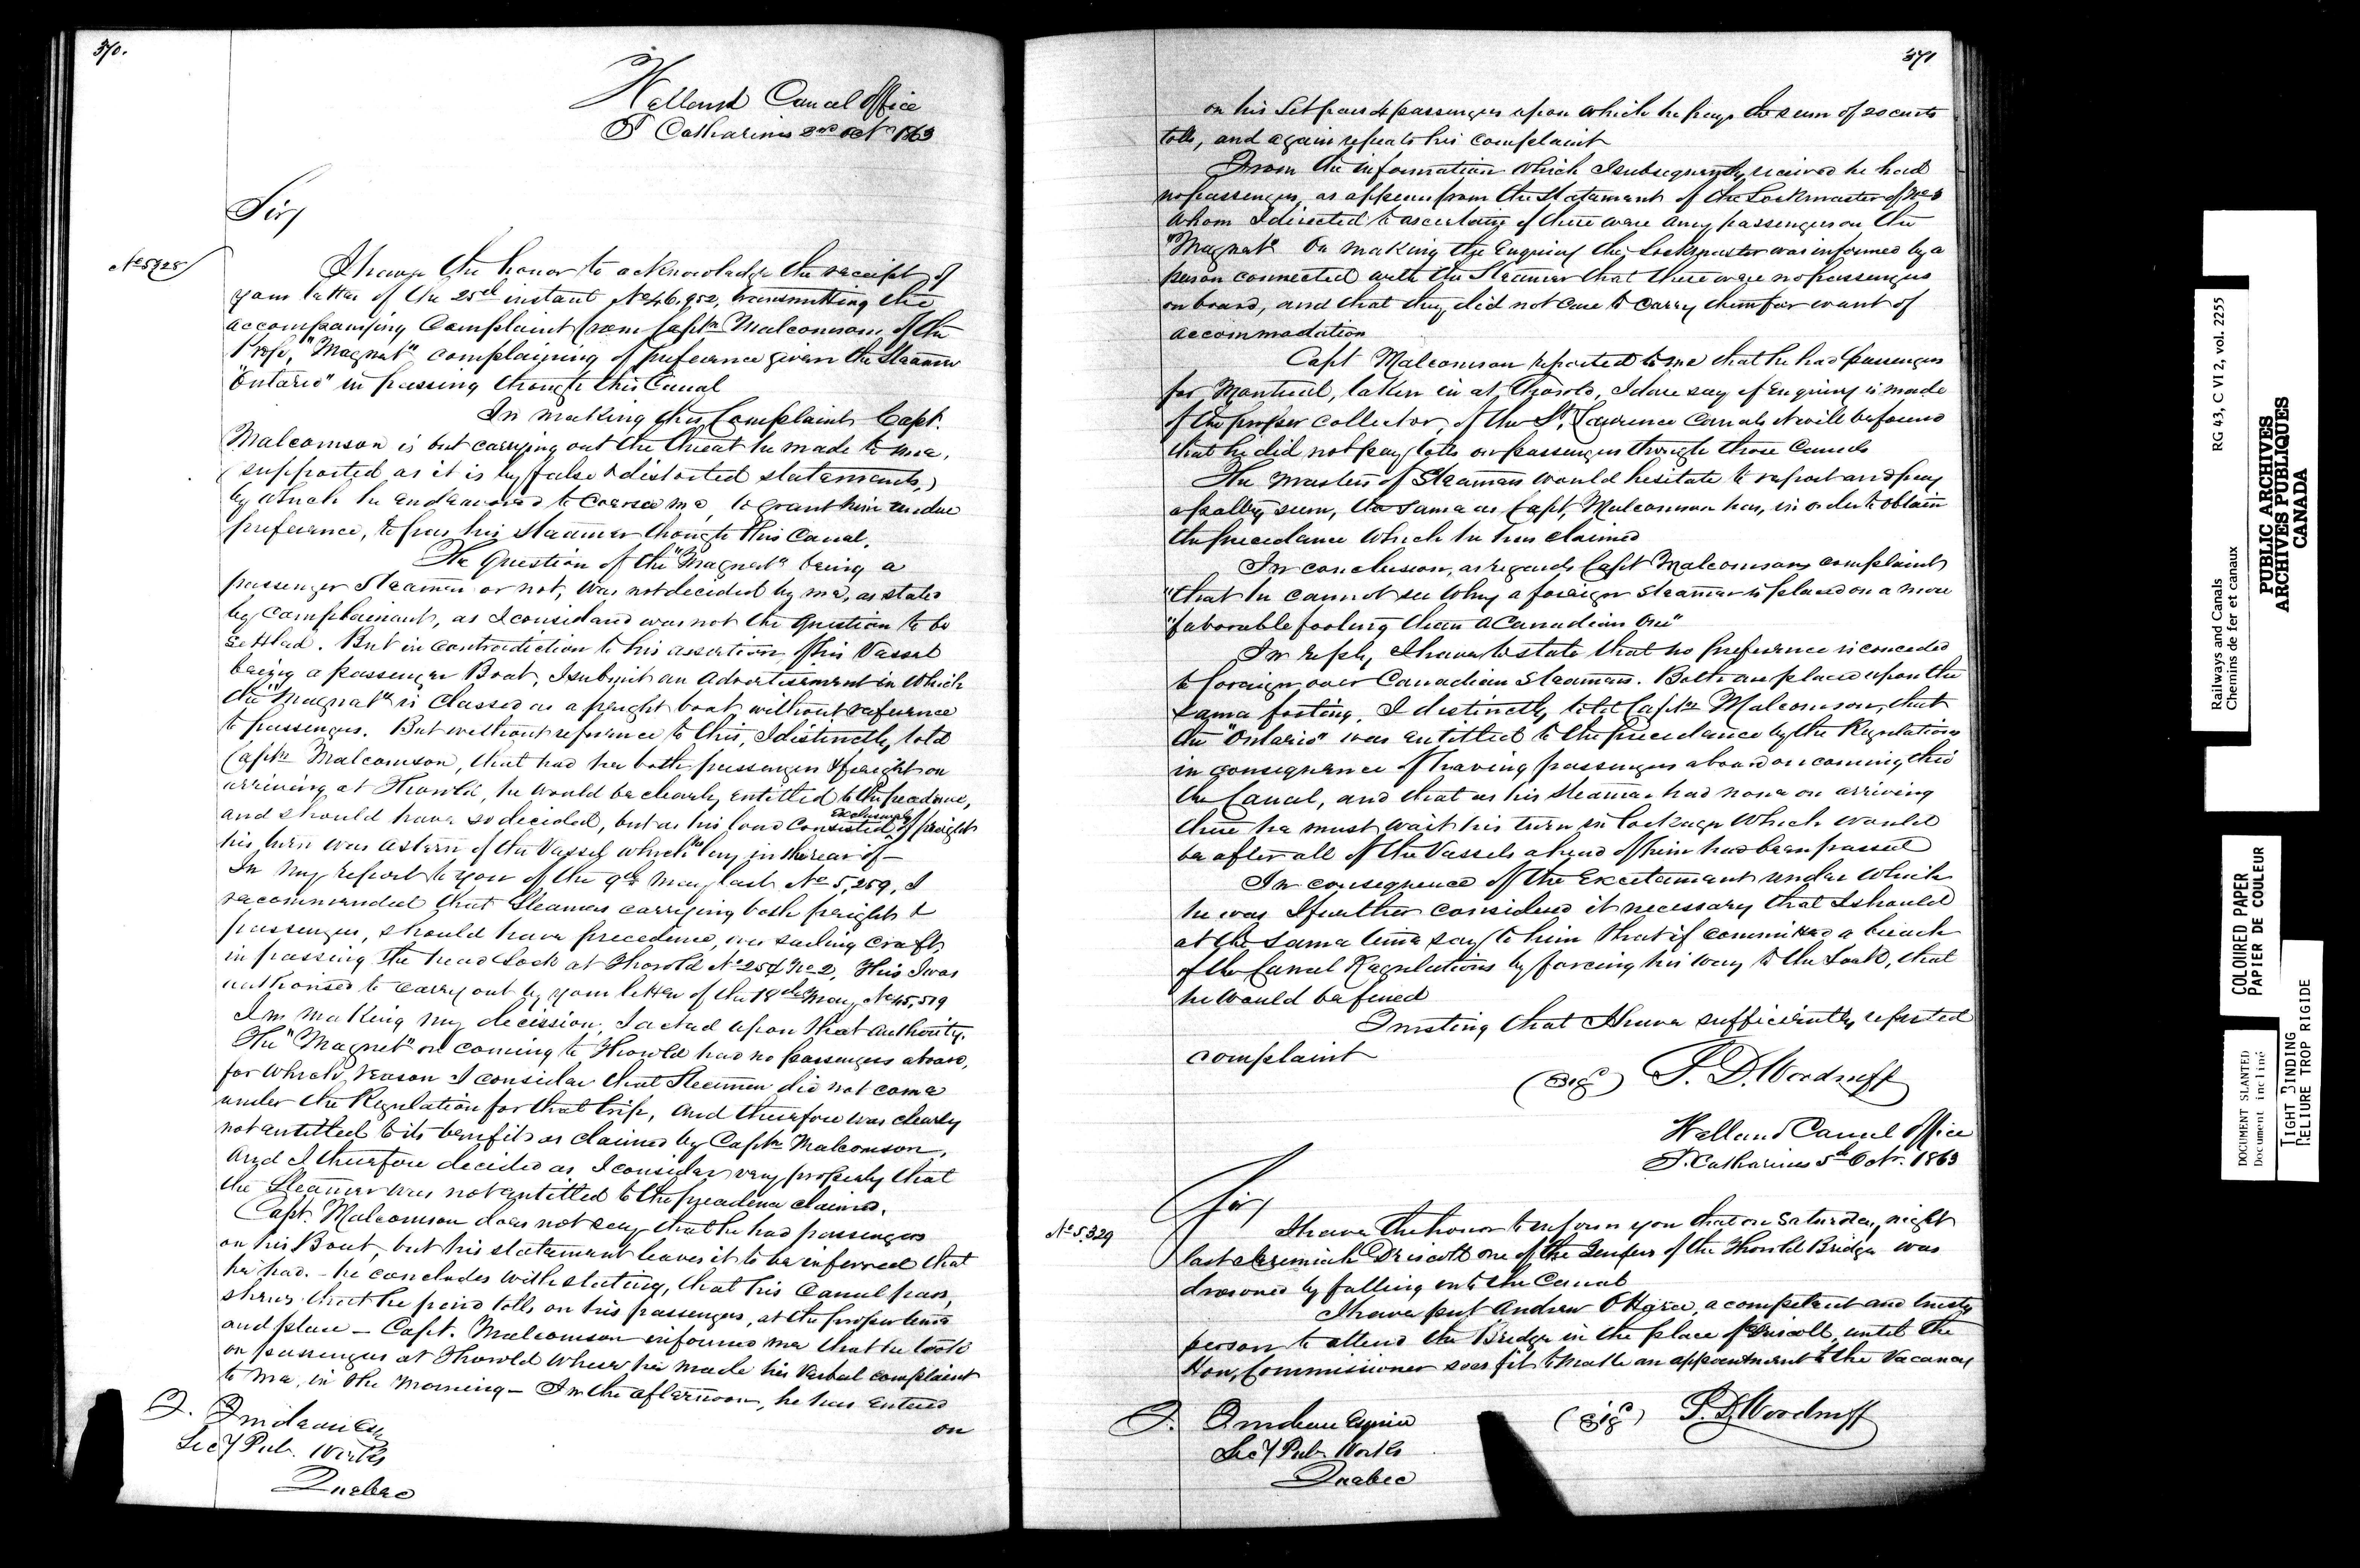 370.
Welland Canal Office
St Catharines 2nd Octr 1863
Sir,
No 5328
I have the honor to acknowledge the receipt of
your letter of the 25th instant No 46,952, transmitting the
accompanying Complaint from Captn Malcomson of the
Prop. "Magnet" complaining of preference given the Steamer
"Ontario" in passing through this Canal
In making this Complaint Capt.
Malcomson is but carrying out the threat he made to me,
(supported as it is by false & distorted statements,)
by which he endeavored to coerce me, to grant him undue
preference, to pass his Steamer through this Canal.
The Question of the "Magnet" being a
passenger Steamer or not, was not decided by me, as stated
by Complainant, as I considered was not the question to be
settled. But in contradiction to his assertion, of his Vessel
being a passenger Boat, I submit an Advertisement in which
the "Magnet" is Classed as a freight boat without reference
to passengers. But without reference to this, I distinctly told
Captn Malcomson, that had he both passengers & freight on
arriving at Thorold, he would be clearly entitled to the precedence,
and should have so decided, but as his load consisted exclusively of freight
his turn was astern of the Vessel which he lay in the rear of —
In my report to you of the 9th May last No 5,259, I
recommended that Steamers carrying both freight &
passengers, should have precedence, over sailing craft
in passing the head Lock at Thorold No 25 & No 2. This I was
authorised to carry out by your letter of the 18th May No 45,519
In making my decission, I acted upon that authority.
The "Magnet" on coming to Thorold had no passengers aboard,
for which reason I consider that Steamer did not come
under the Regulation for that trip, and therefore was clearly
not entitled to its benefits as claimed by Captn Malcomson,
and I therefore decided as I consider very properly that
the Steamer was not entitled to the precedence claimed.
Capt. Malcomson does not say that he had passengers
on his Boat, but his statement leaves it to be inferred that
he had. — he concludes with stating, that his Canal pass,
shews that he paid tolls on his passengers, at the proper time
and place — Capt. Malcomson informed me that he took
on passengers at Thorold where he made his verbal complaint
to me, in the morning — In the afternoon, he has entered
on
T. Trudeau Esq
Secy Pub. Works
Quebec
371
on his Let pass 4 passengers upon which he pays the sum of 20 cents
tolls, and again repeats his complaint
From the information which I subsequently received he had
no passengers, as appears from the Statement of the Lockmaster of No 3
whom I directed to ascertain if there were any passengers on the
"Magnet" On making the Enquiry the Lockmaster was informed by a
person connected with the Steamer that there were no passengers
on board, and that they did not care to carry them for want of
accommodation
Capt Malcomson reported to me that he had passengers
for Montreal, taken in at Thorold, I dare say if Enquiry is made
of the proper Collector, of the St. Lawrence Canals it will be found
that he did not pay tolls on passengers through those Canals
The Masters of Steamers would hesitate to report and pay
a paltry sum, the same as Capt, Malcomson has, in order to obtain
the precedence which he has claimed
In conclusion, as regards Capt Malcomsons complaint
"that he cannot see why a foreign Steamer is placed on a more
"favorable footing than a Canadian One"
In reply, I have to state that no preference is conceded
to foreign over Canadian Steamers. Both are placed upon the
same footing. I distinctly told Captn Malcomson, that
the "Ontario" was entitled to the precedence by the Regulations
in consequence of having passengers aboard on coming thro'
the Canal, and that as his steamer had none on arriving
there he must wait his turn in lockage which would
be after all of the Vessels ahead of him had been passed
In consequence of the Excitement under which
he was I further considered it necessary that I should
at the same time say to him that if committed a breach
of the Canal Regulations by forcing his way to the Lock, that
he would be fined
Trusting that I have sufficiently refuted
complaint
(Sigd) S. D. Woodruff
Welland Canal Office
St. Catharines 5th Octr. 1863
Sir,
No 5,329
I have the honor to inform you that on Saturday night
last Jeremiah Driscoll one of the Tenders of the Thorold Bridge was
drowned by falling into the Canal
I have put Andrew O'Hara, a competent and trusty
person to attend the Bridge in the place of Driscoll, until the
Hon, Commissioner sees fit to make an appointment to the Vacancy
(Sigd) S. D. Woodruff
T. Trudeau Esquire
Secy Pub Works
Quebec
Railways and Canals
Chemins de fer et canaux
RG 43, C VI 2, vol. 2255
PUBLIC ARCHIVES
ARCHIVES PUBLIQUES
CANADA
COLOURED PAPER
PAPIER DE COULEUR
DOCUMENT SLANTED
Document incliné
TIGHT BINDING
RELIURE TROP RIGIDE